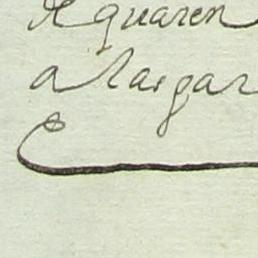 de quaren
a las gar